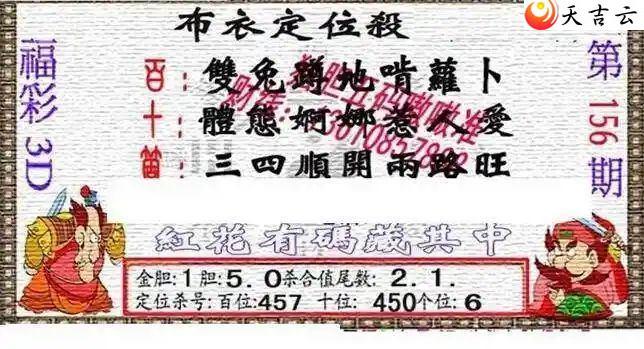 天吉云
布衣定位殺
福彩3D
第156期
百：雙兔蹲地啃蘿卜
十：體態婀娜惹人愛
三四順開兩路旺
紅花有碼藏其中
金胆:1胆:5.0杀合值尾数:2.1.
定位杀号:百位:457 十位:450个位:6